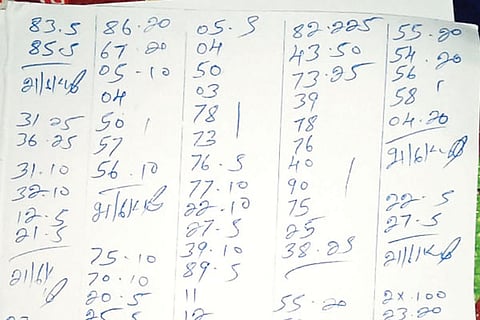 83.5
85.5
31.25
36.25
31.10
32.10
12.5
21.5
86.20
67.20
05-10
04
50
57
56.10
75.10
70.10
20.5
25.5
05.5
04
50
03
78
73
76.5
77.10
22.10
27.5
39.10
89.5
11
12
82.225
43.50
73.25
39
78
76
40
90
75
25
38.25
55.20
55.20
54.20
56
58
04.20
22.5
27.5
2x.100
23.20